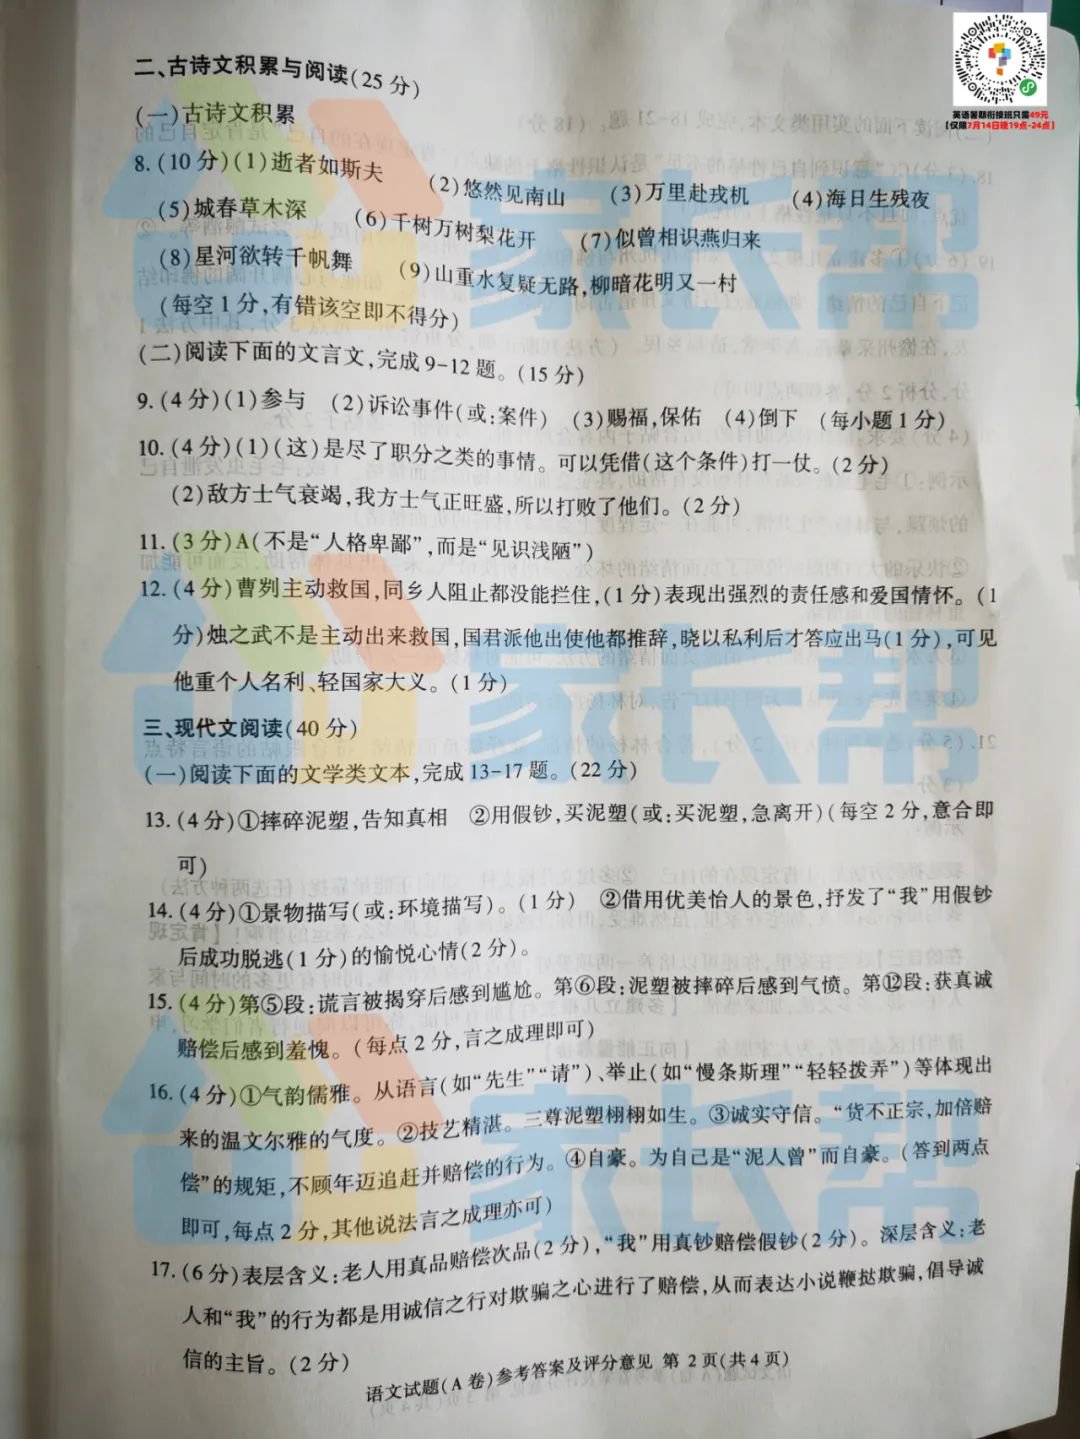 英语暑期衔接班只需49元
【仅限7月14日晚19点-24点】
二、古诗文积累与阅读(25分)
(一)古诗文积累
8.(10分)(1)逝者如斯夫 (2)悠然见南山 (3)万里赴戎机 (4)海日生残夜
(5)城春草木深 (6)千树万树梨花开 (7)似曾相识燕归来
(8)星河欲转千帆舞 (9)山重水复疑无路,柳暗花明又一村
(每空1分,有错该空即不得分)
(二)阅读下面的文言文,完成9-12题。(15分)
9.(4分)(1)参与 (2)诉讼事件(或:案件) (3)赐福,保佑 (4)倒下 (每小题1分)
10.(4分)(1)(这)是尽了职分之类的事情。可以凭借(这个条件)打一仗。(2分)
(2)敌方士气衰竭,我方士气正旺盛,所以打败了他们。(2分)
11.(3分)A(不是“人格卑鄙”,而是“见识浅陋”)
12.(4分)曹刿主动救国,同乡人阻止都没能拦住,(1分)表现出强烈的责任感和爱国情怀。(1
分)烛之武不是主动出来救国,国君派他出使他都推辞,晓以私利后才答应出马(1分),可见
他重个人名利、轻国家大义。(1分)
三、现代文阅读(40分)
(一)阅读下面的文学类文本,完成13-17题。(22分)
13.(4分)①摔碎泥塑,告知真相 ②用假钞,买泥塑(或:买泥塑,急离开)(每空2分,意合即
可)
14.(4分)①景物描写(或:环境描写)。(1分) ②借用优美怡人的景色,抒发了“我”用假钞
后成功脱逃(1分)的愉悦心情(2分)。
15.(4分)第⑤段:谎言被揭穿后感到尴尬。第⑥段:泥塑被摔碎后感到气愤。第⑫段:获真诚
赔偿后感到羞愧。(每点2分,言之成理即可)
16.(4分)①气韵儒雅。从语言(如“先生”“请”)、举止(如“慢条斯理”“轻轻拨弄”)等体现出
来的温文尔雅的气度。②技艺精湛。三尊泥塑栩栩如生。③诚实守信。“货不正宗,加倍赔
偿”的规矩,不顾年迈追赶并赔偿的行为。④自豪。为自己是“泥人曾”而自豪。(答到两点
即可,每点2分,其他说法言之成理亦可)
17.(6分)表层含义:老人用真品赔偿次品(2分),“我”用真钞赔偿假钞(2分)。深层含义:老
人和“我”的行为都是用诚信之行对欺骗之心进行了赔偿,从而表达小说鞭挞欺骗,倡导诚
信的主旨。(2分)
语文试题(A卷)参考答案及评分意见 第2页(共4页)
家长帮
家长帮
家长帮